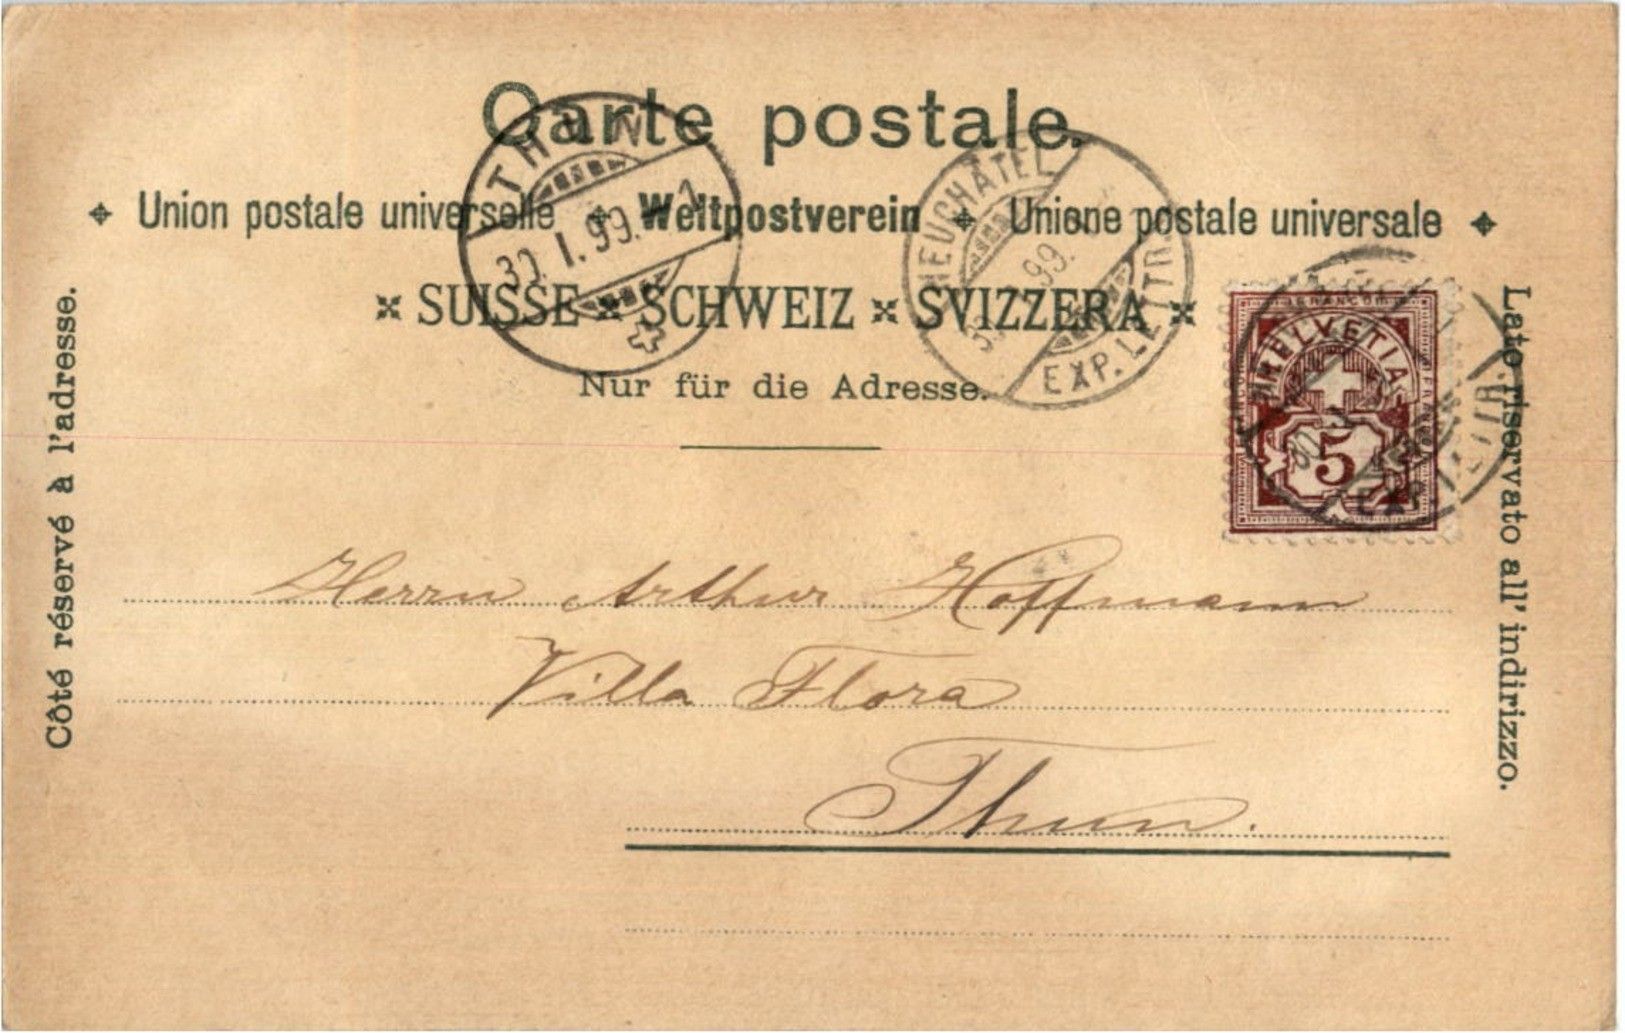 Carte postale.
Union postale universelle Weltpostverein Unione postale universale
SUISSE SCHWEIZ SVIZZERA
Nur für die Adresse.
Côté réservé à l'adresse.
Lato riservato all' indirizzo.
THUN
30. I. 99.
NEUCHÂTEL
99.
EXP. LETTR.
FRANCO
HELVETIA
5
EXP. LETTR.
Herrn Arthur Hoffmann
Villa Flora
Thun.